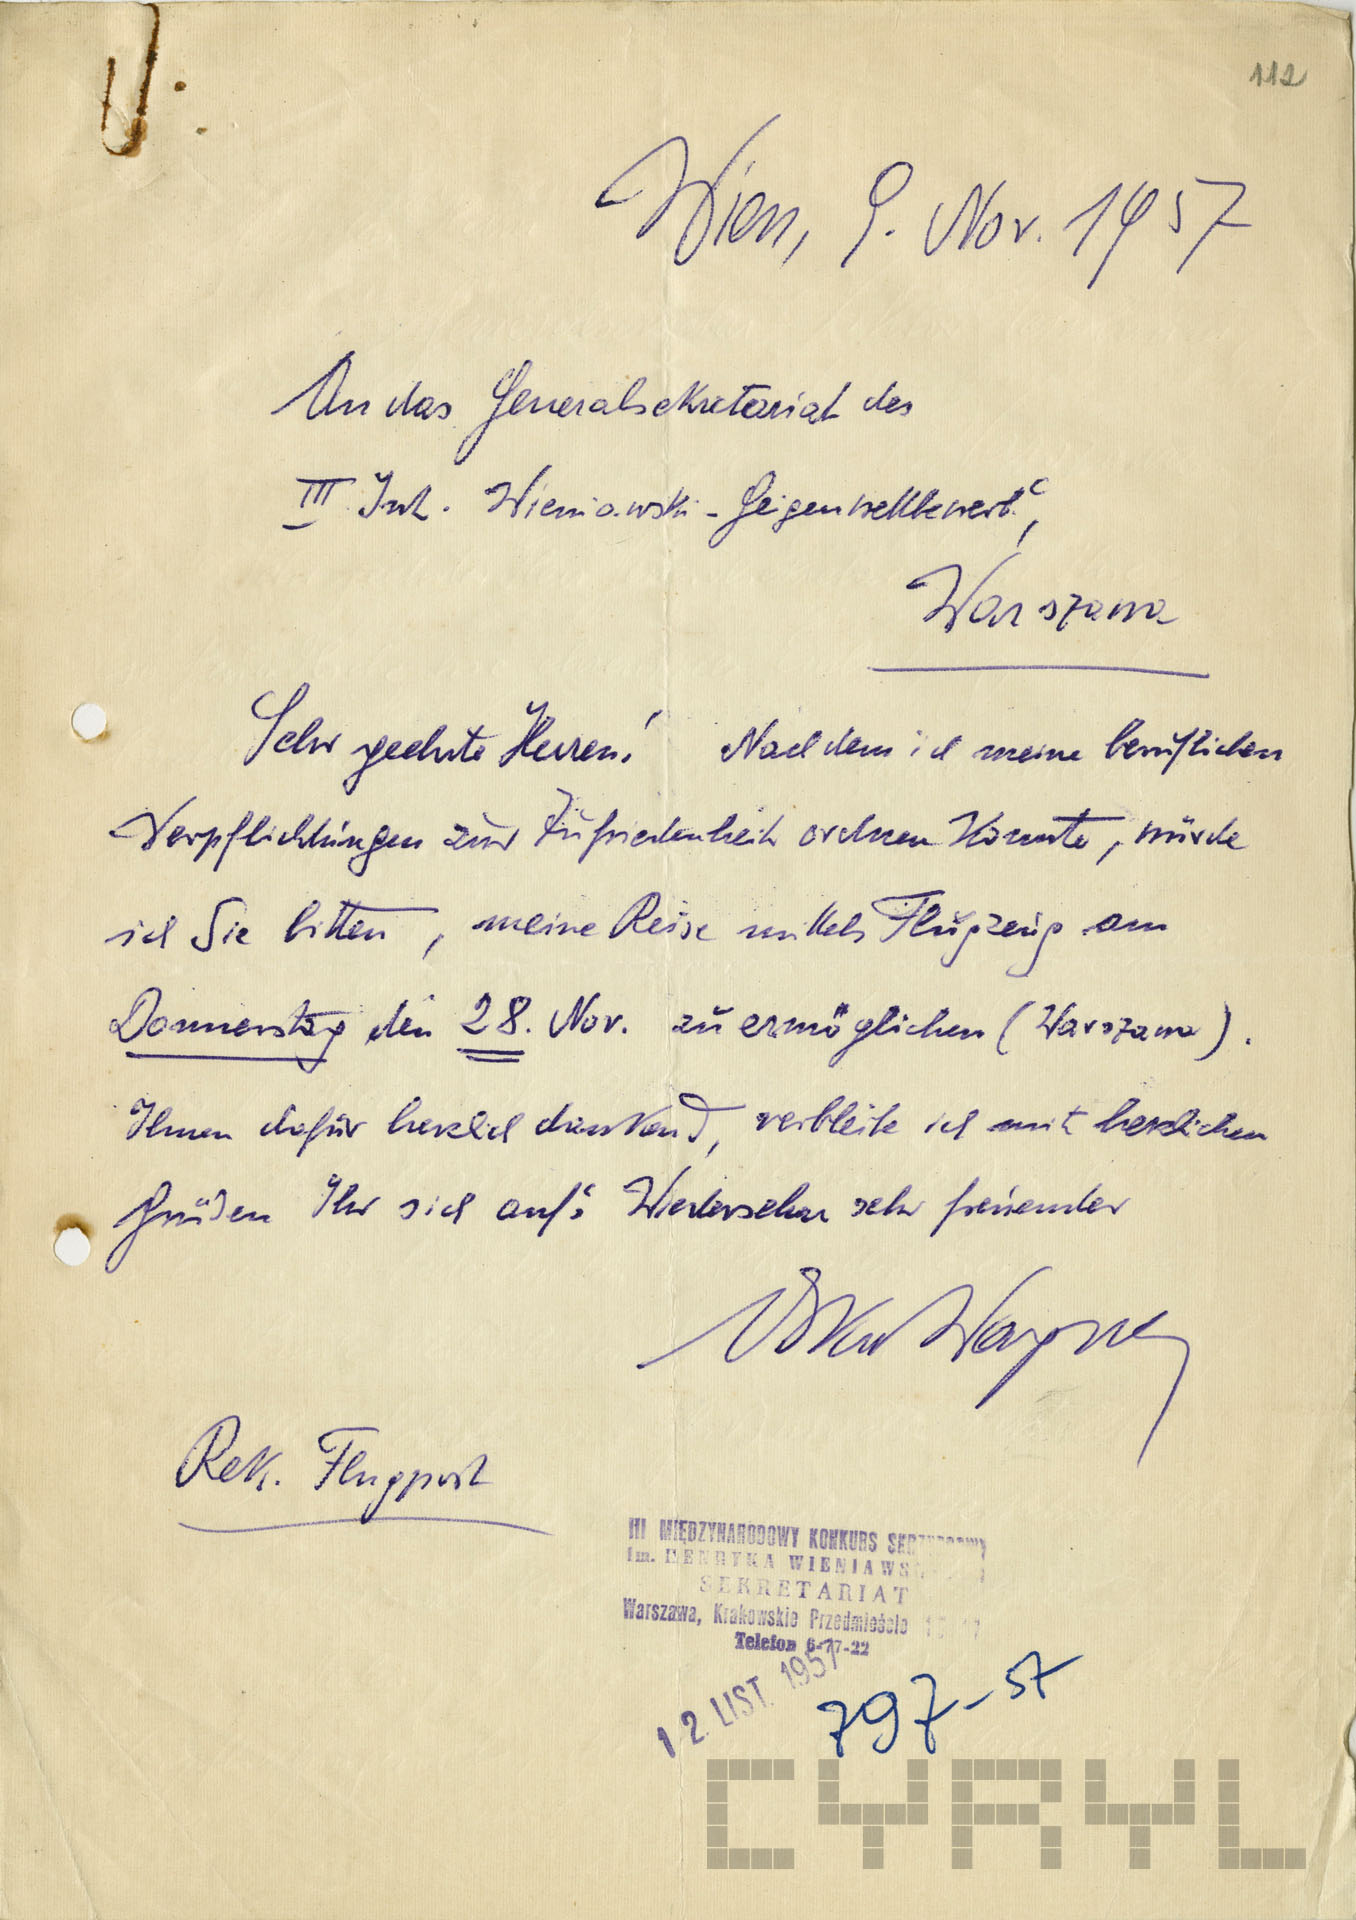 112
Wien, 9. Nov. 1957
An das Generalsekretariat des
III. Int. Wieniawski-Geigenwettbewerb",
Warszawa
Sehr geehrte Herren! Nachdem ich meine beruflichen
Verpflichtungen zur Zufriedenheit ordnen konnte, würde
ich Sie bitten, meine Reise mittels Flugzeug am
Donnerstag den 28. Nov. zu ermöglichen (Warszawa).
Ihnen dafür herzlich dankend, verbleibe ich mit herzlichen
Grüßen Ihr sich auf's Wiedersehen sehr freuender
Oskar Wagner
Rek. Flugpost
III MIĘDZYNARODOWY KONKURS
im. HENRYKA
SEKRETARIAT
Warszawa, Krakowskie Przedmieście
Telefon 6-77-22
12 LIST. 1957
797-57
CYRYL